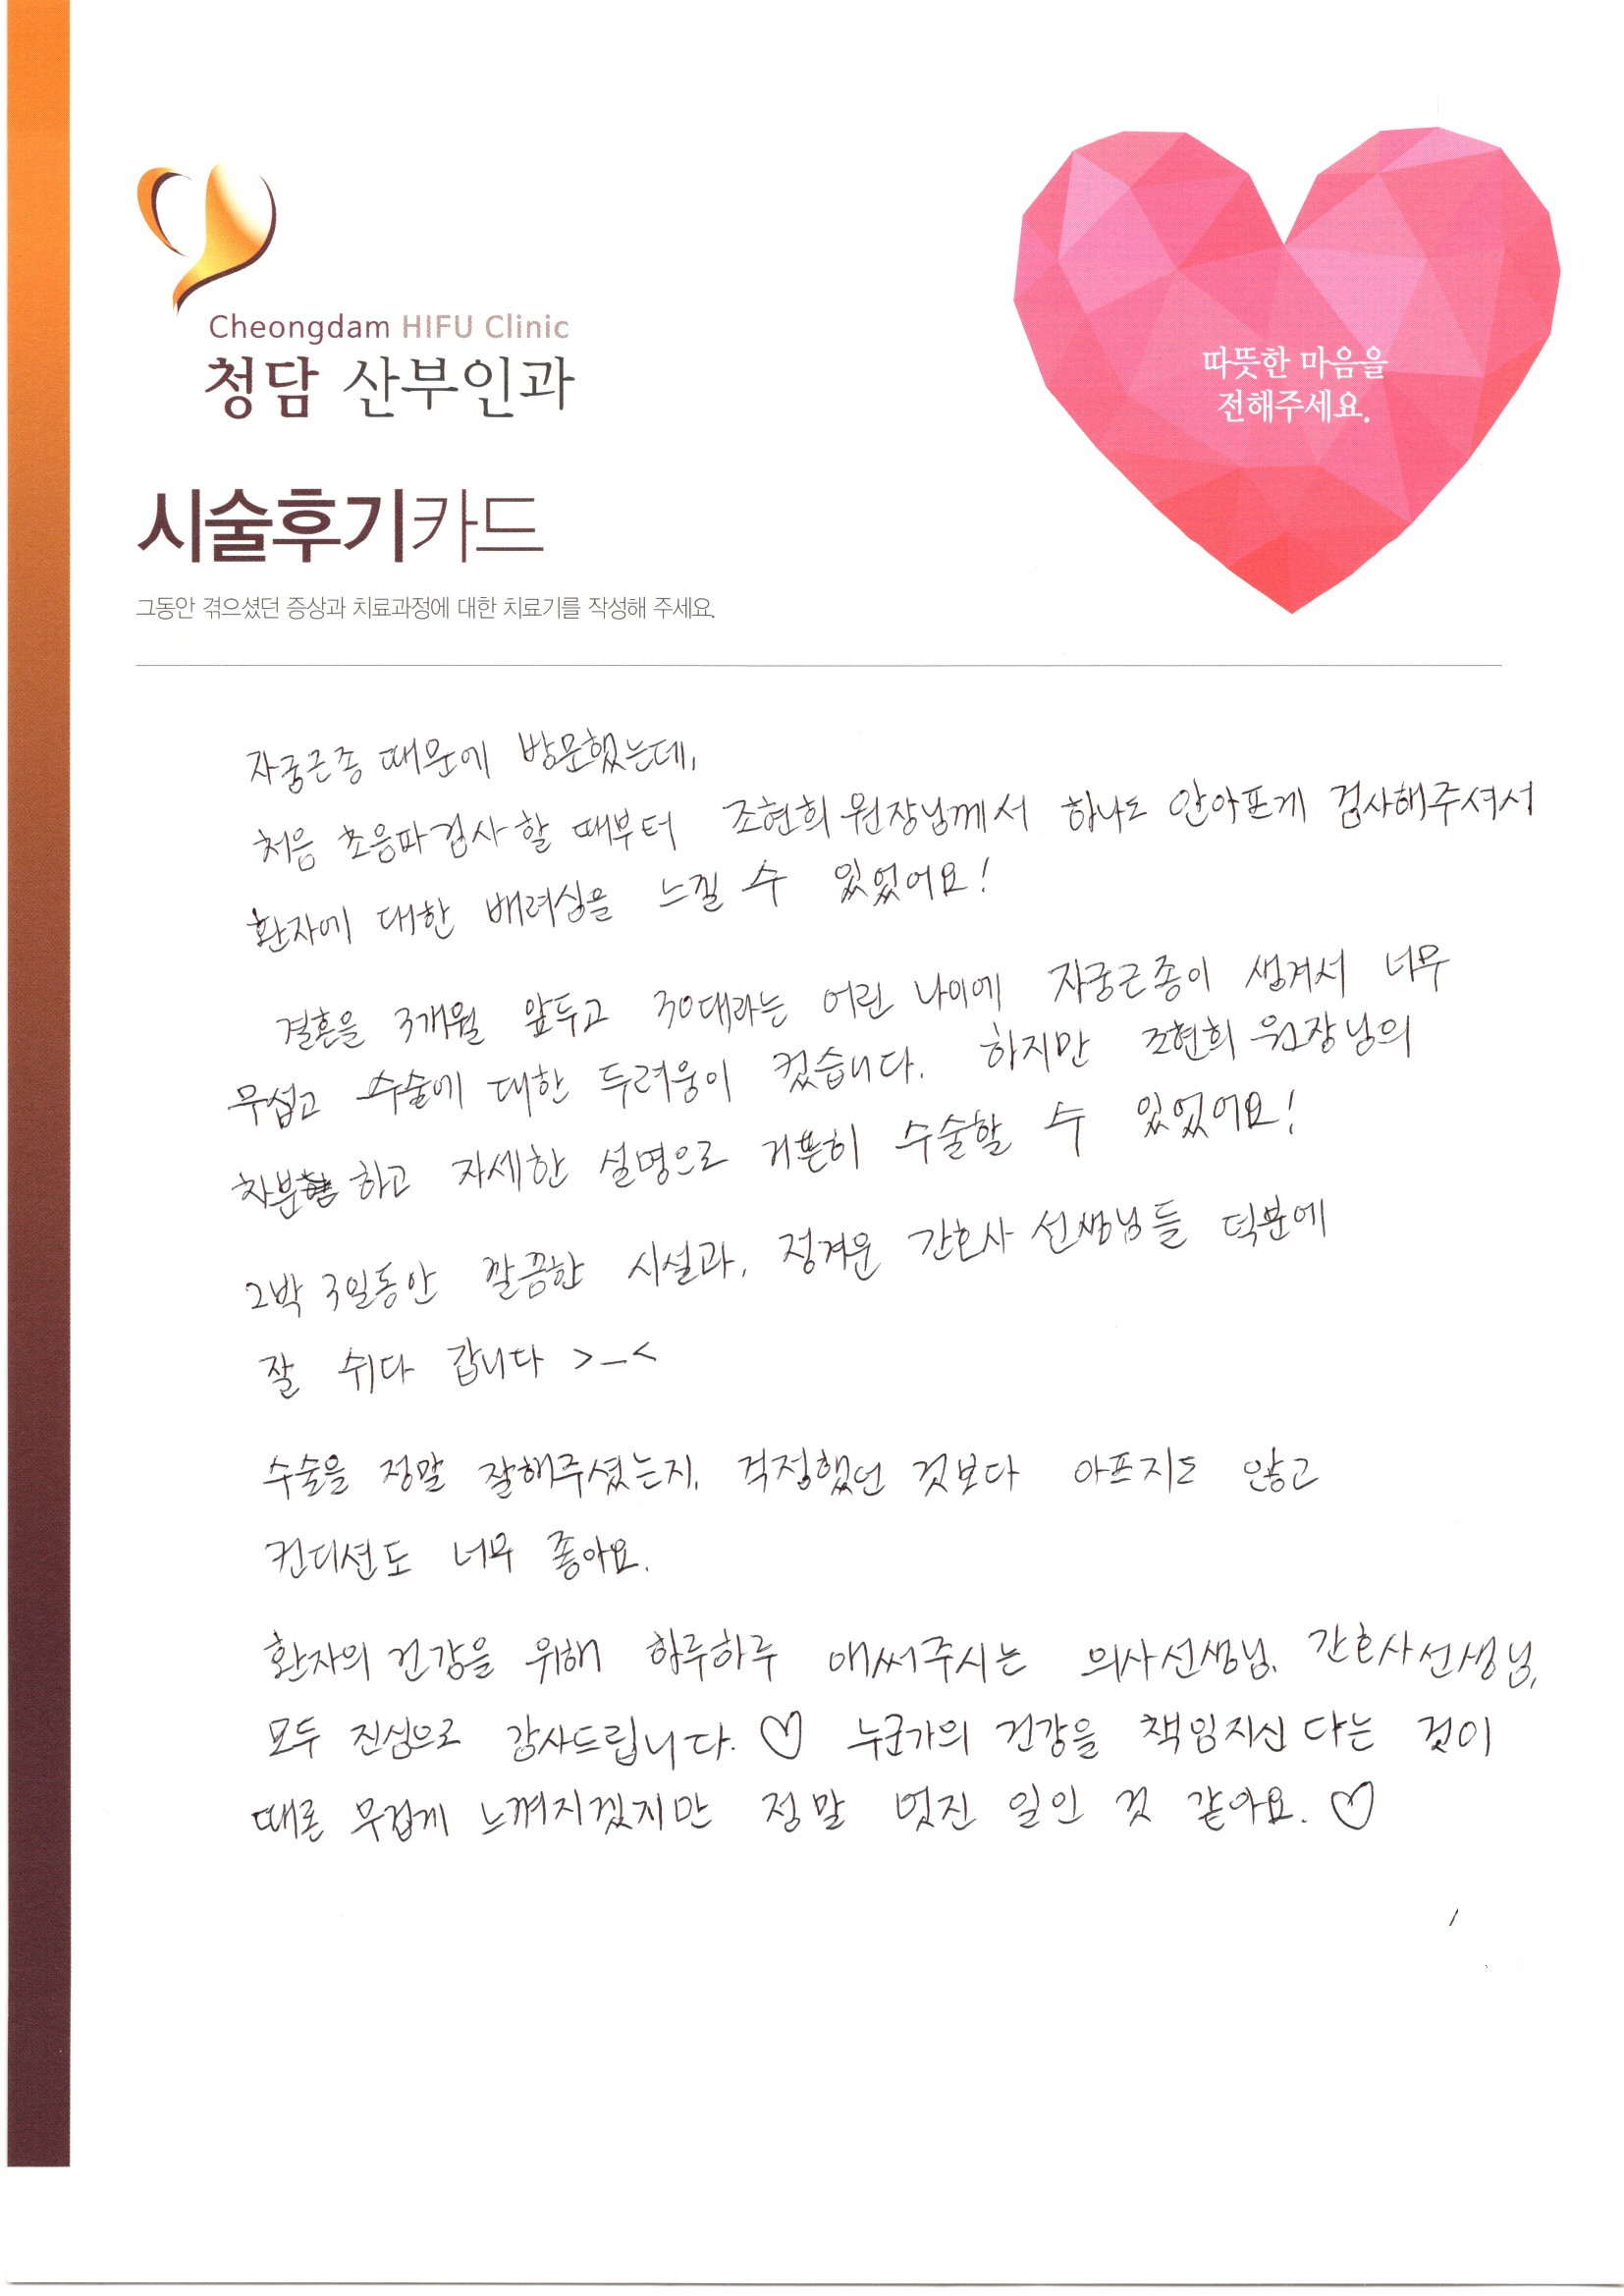 Cheongdam HIFU Clinic
청담 산부인과
따뜻한 마음을
전해주세요.
시술후기카드
그동안 겪으셨던 증상과 치료과정에 대한 치료기를 작성해 주세요.
자궁근종 때문에 방문했는데,
처음 초음파검사 할 때부터 조현희 원장님께서 하나도 안아프게 검사해주셔서
환자에 대한 배려심을 느낄 수 있었어요!
결혼을 3개월 앞두고 30대라는 어린 나이에 자궁근종이 생겨서 너무
무섭고 수술에 대한 두려움이 컸습니다. 하지만 조현희 원장님의
차분 하고 자세한 설명으로 거뜬히 수술할 수 있었어요!
2박 3일동안 깔끔한 시설과, 정겨운 간호사 선생님들 덕분에
잘 쉬다 갑니다 >_<
수술을 정말 잘해주셨는지, 걱정했던 것보다 아프지도 않고
컨디션도 너무 좋아요.
환자의 건강을 위해 하루하루 애써주시는 의사선생님, 간호사선생님,
모두 진심으로 감사드립니다. ♡ 누군가의 건강을 책임지신다는 것이
때론 무겁게 느껴지겠지만 정말 멋진 일인 것 같아요. ♡